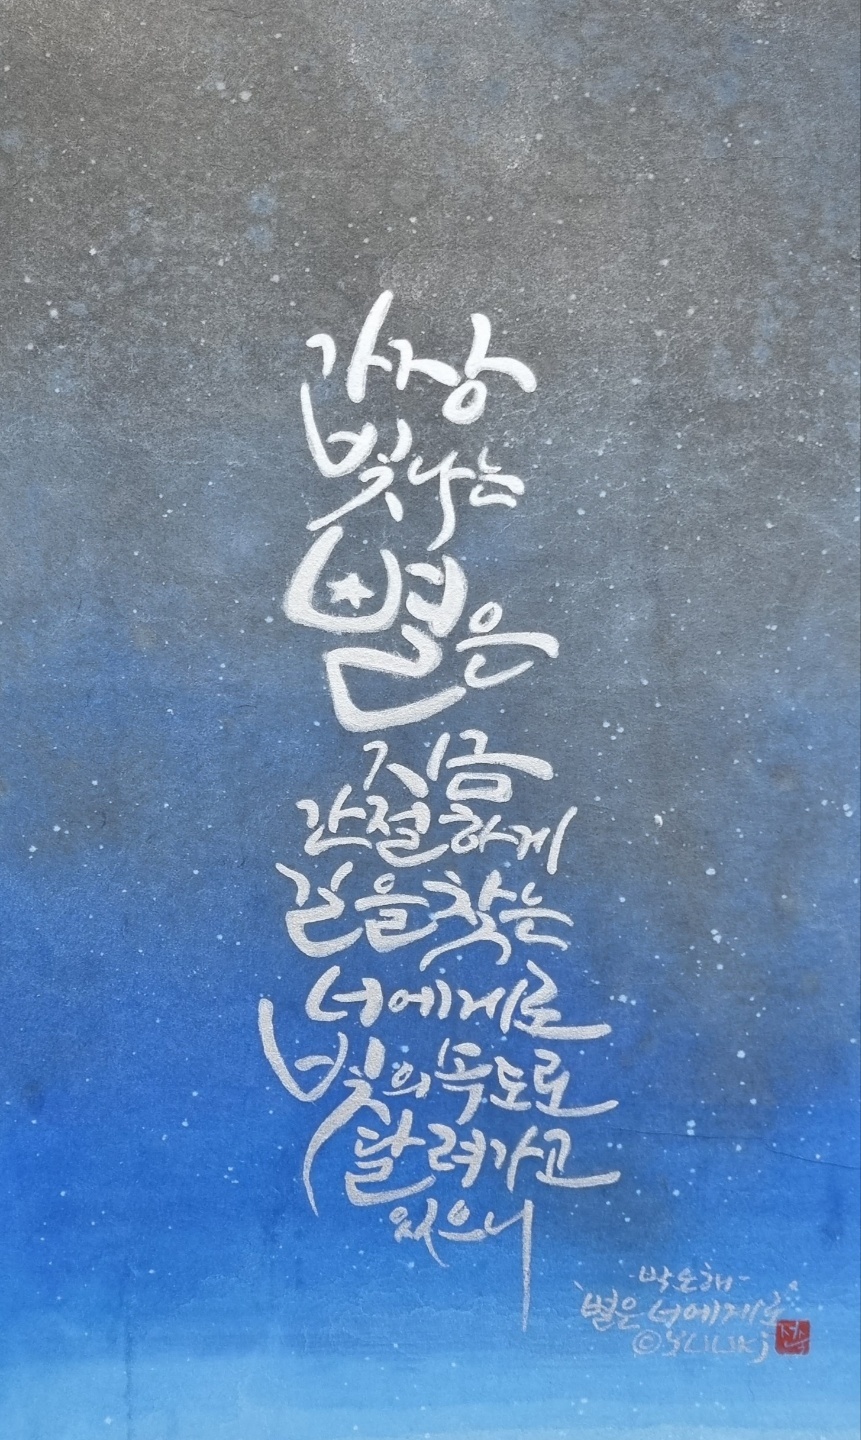 가장
빛나는
별은
지금
간절하게
길을 찾는
너에게로
빛의 속도로
달려가고
있으니
-박노해-
'별은 너에게로'